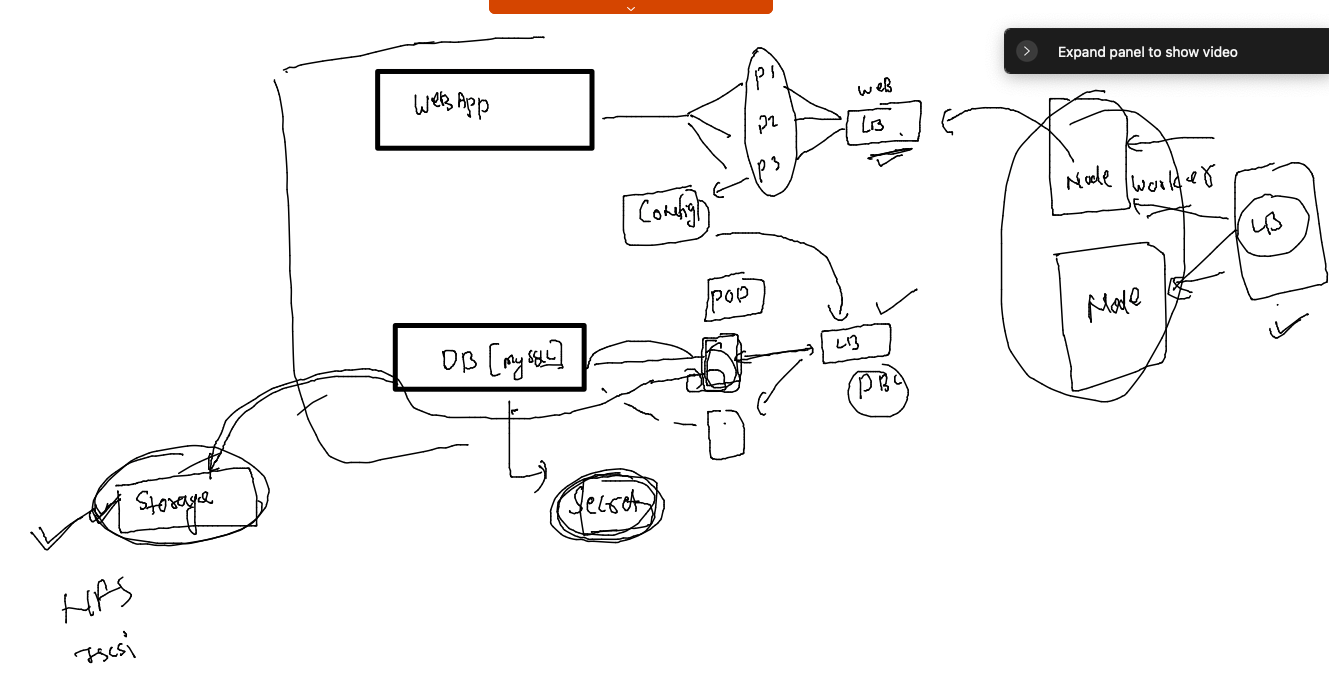 Expand panel to show video
WEB App
P1
P2
P3
WEB
LB
Node
Worker
LB
Config
POD
Node
DB [mySQL]
LB
DB
Storage
Secret
NFS
iscsi